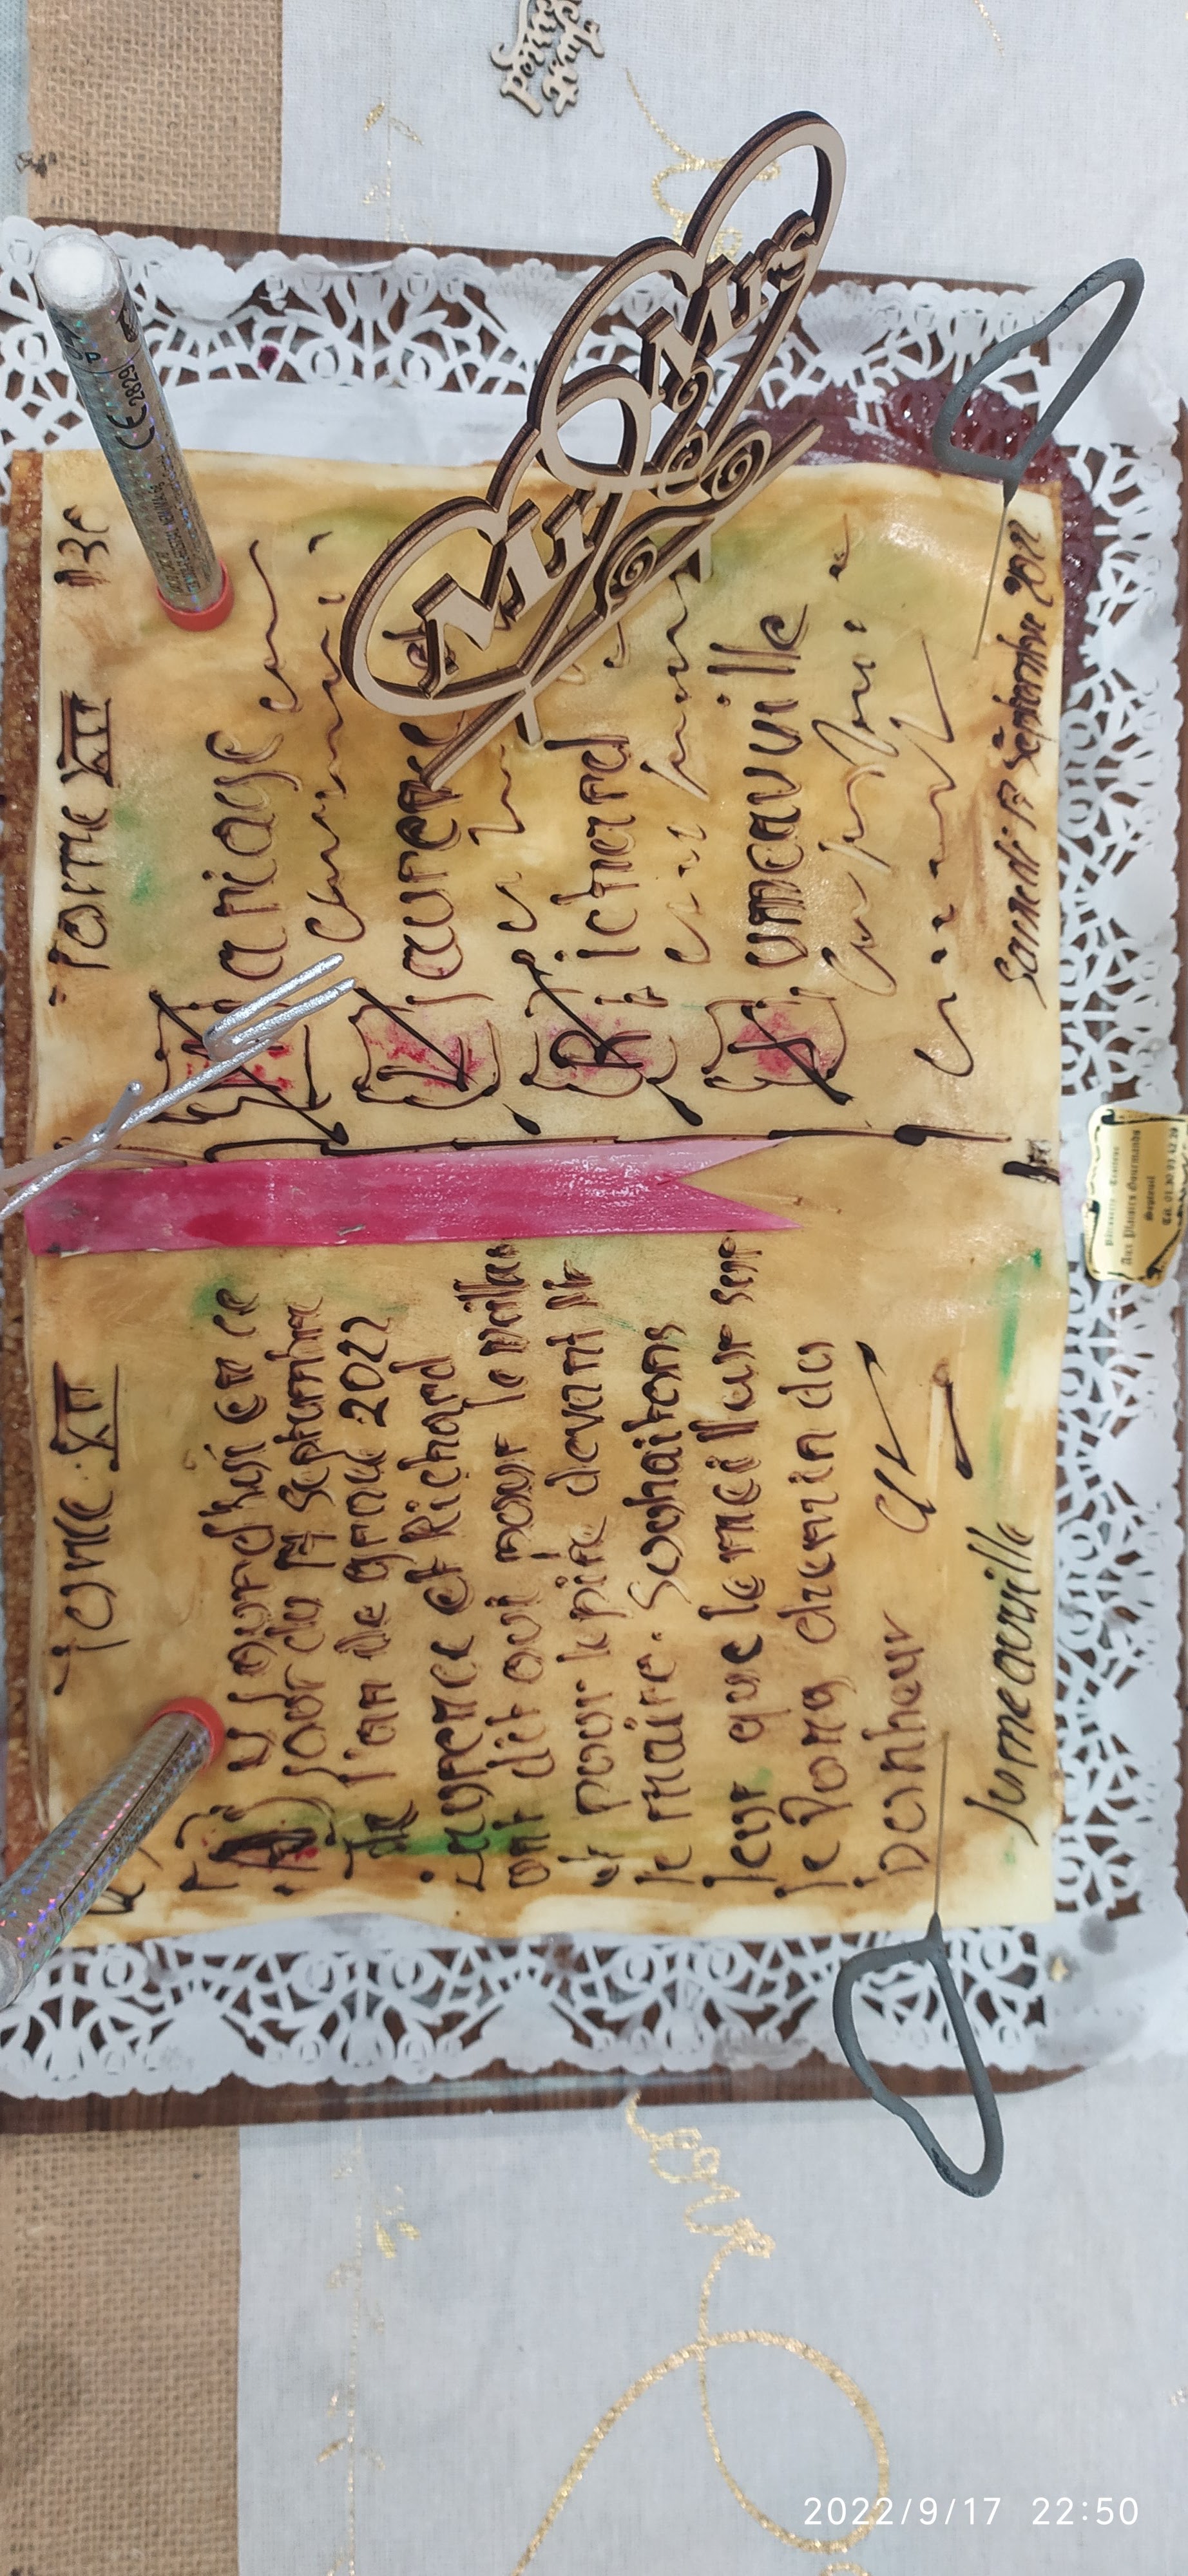 Tome XII
Aujourd'hui en ce
jour du 17 Septembre
de l'an de grace 2022
Laurence et Richard
ont dit oui pour le meilleur
et pour le pire devant Mr
le maire. Souhaitons
leur que le meilleur sur
le long chemin du
bonheur
Jumeauville
Tome XII
Mariage
Laurence et
Richard
Jumeauville
Samedi 17 Septembre 2022
Mr & Mrs
Aux Plaisirs Gourmands
Septeuil
CE 2829
Love
2022/9/17 22:50